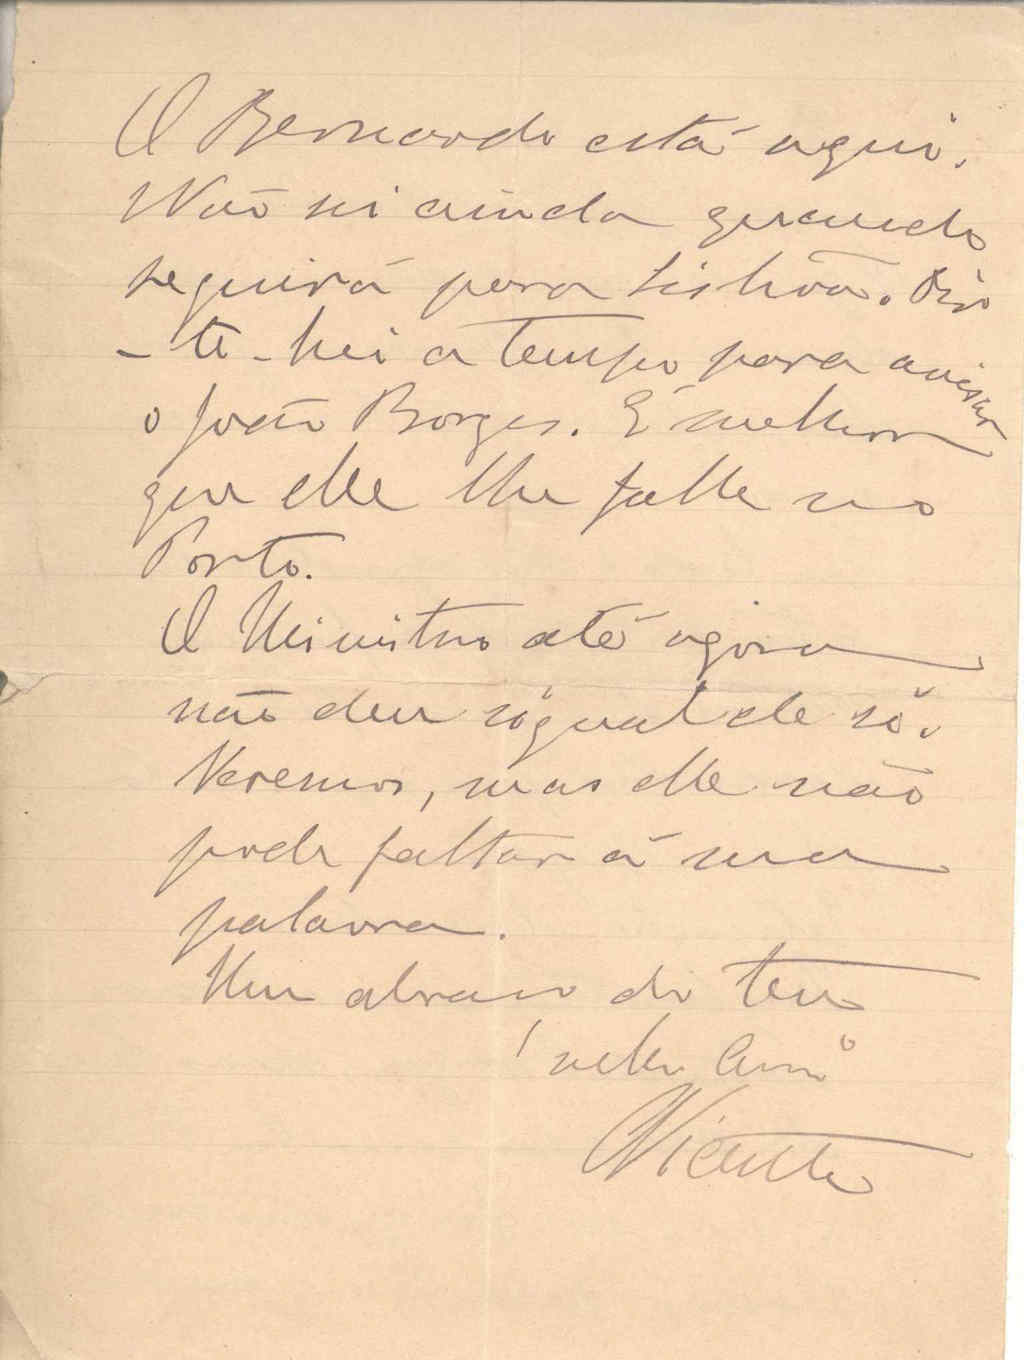 O Bernardo está aqui.
Não sei ainda quando
seguirá para Lisbôa. Dir
- te - hei a tempo para avisar
o João Borges. É melhor
que elle lhe falle no
Porto.
O Ministro até agora
não deu signal de si.
Veremos, mas elle não
pode faltar á sua
palavra.
Um abraço do teu
velho Am.º
Vicente